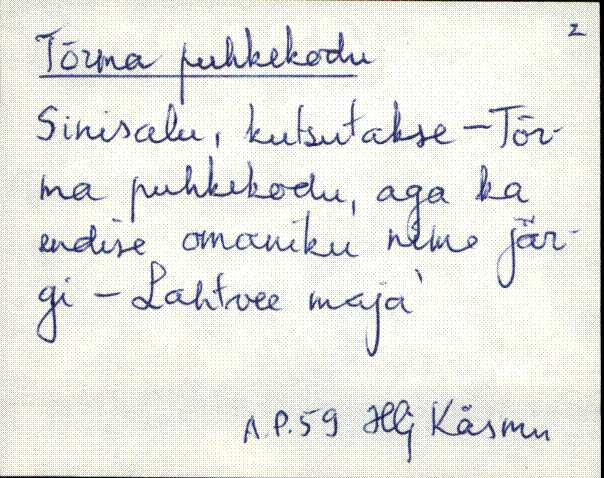 2
Tõrma puhkekodu
Sinisalu, kutsutakse – Tõr-
ma puhkekodu, aga ka
endise omaniku nime jär-
gi – Lahtvee maja
A.P. 59 Hlj Käsmu